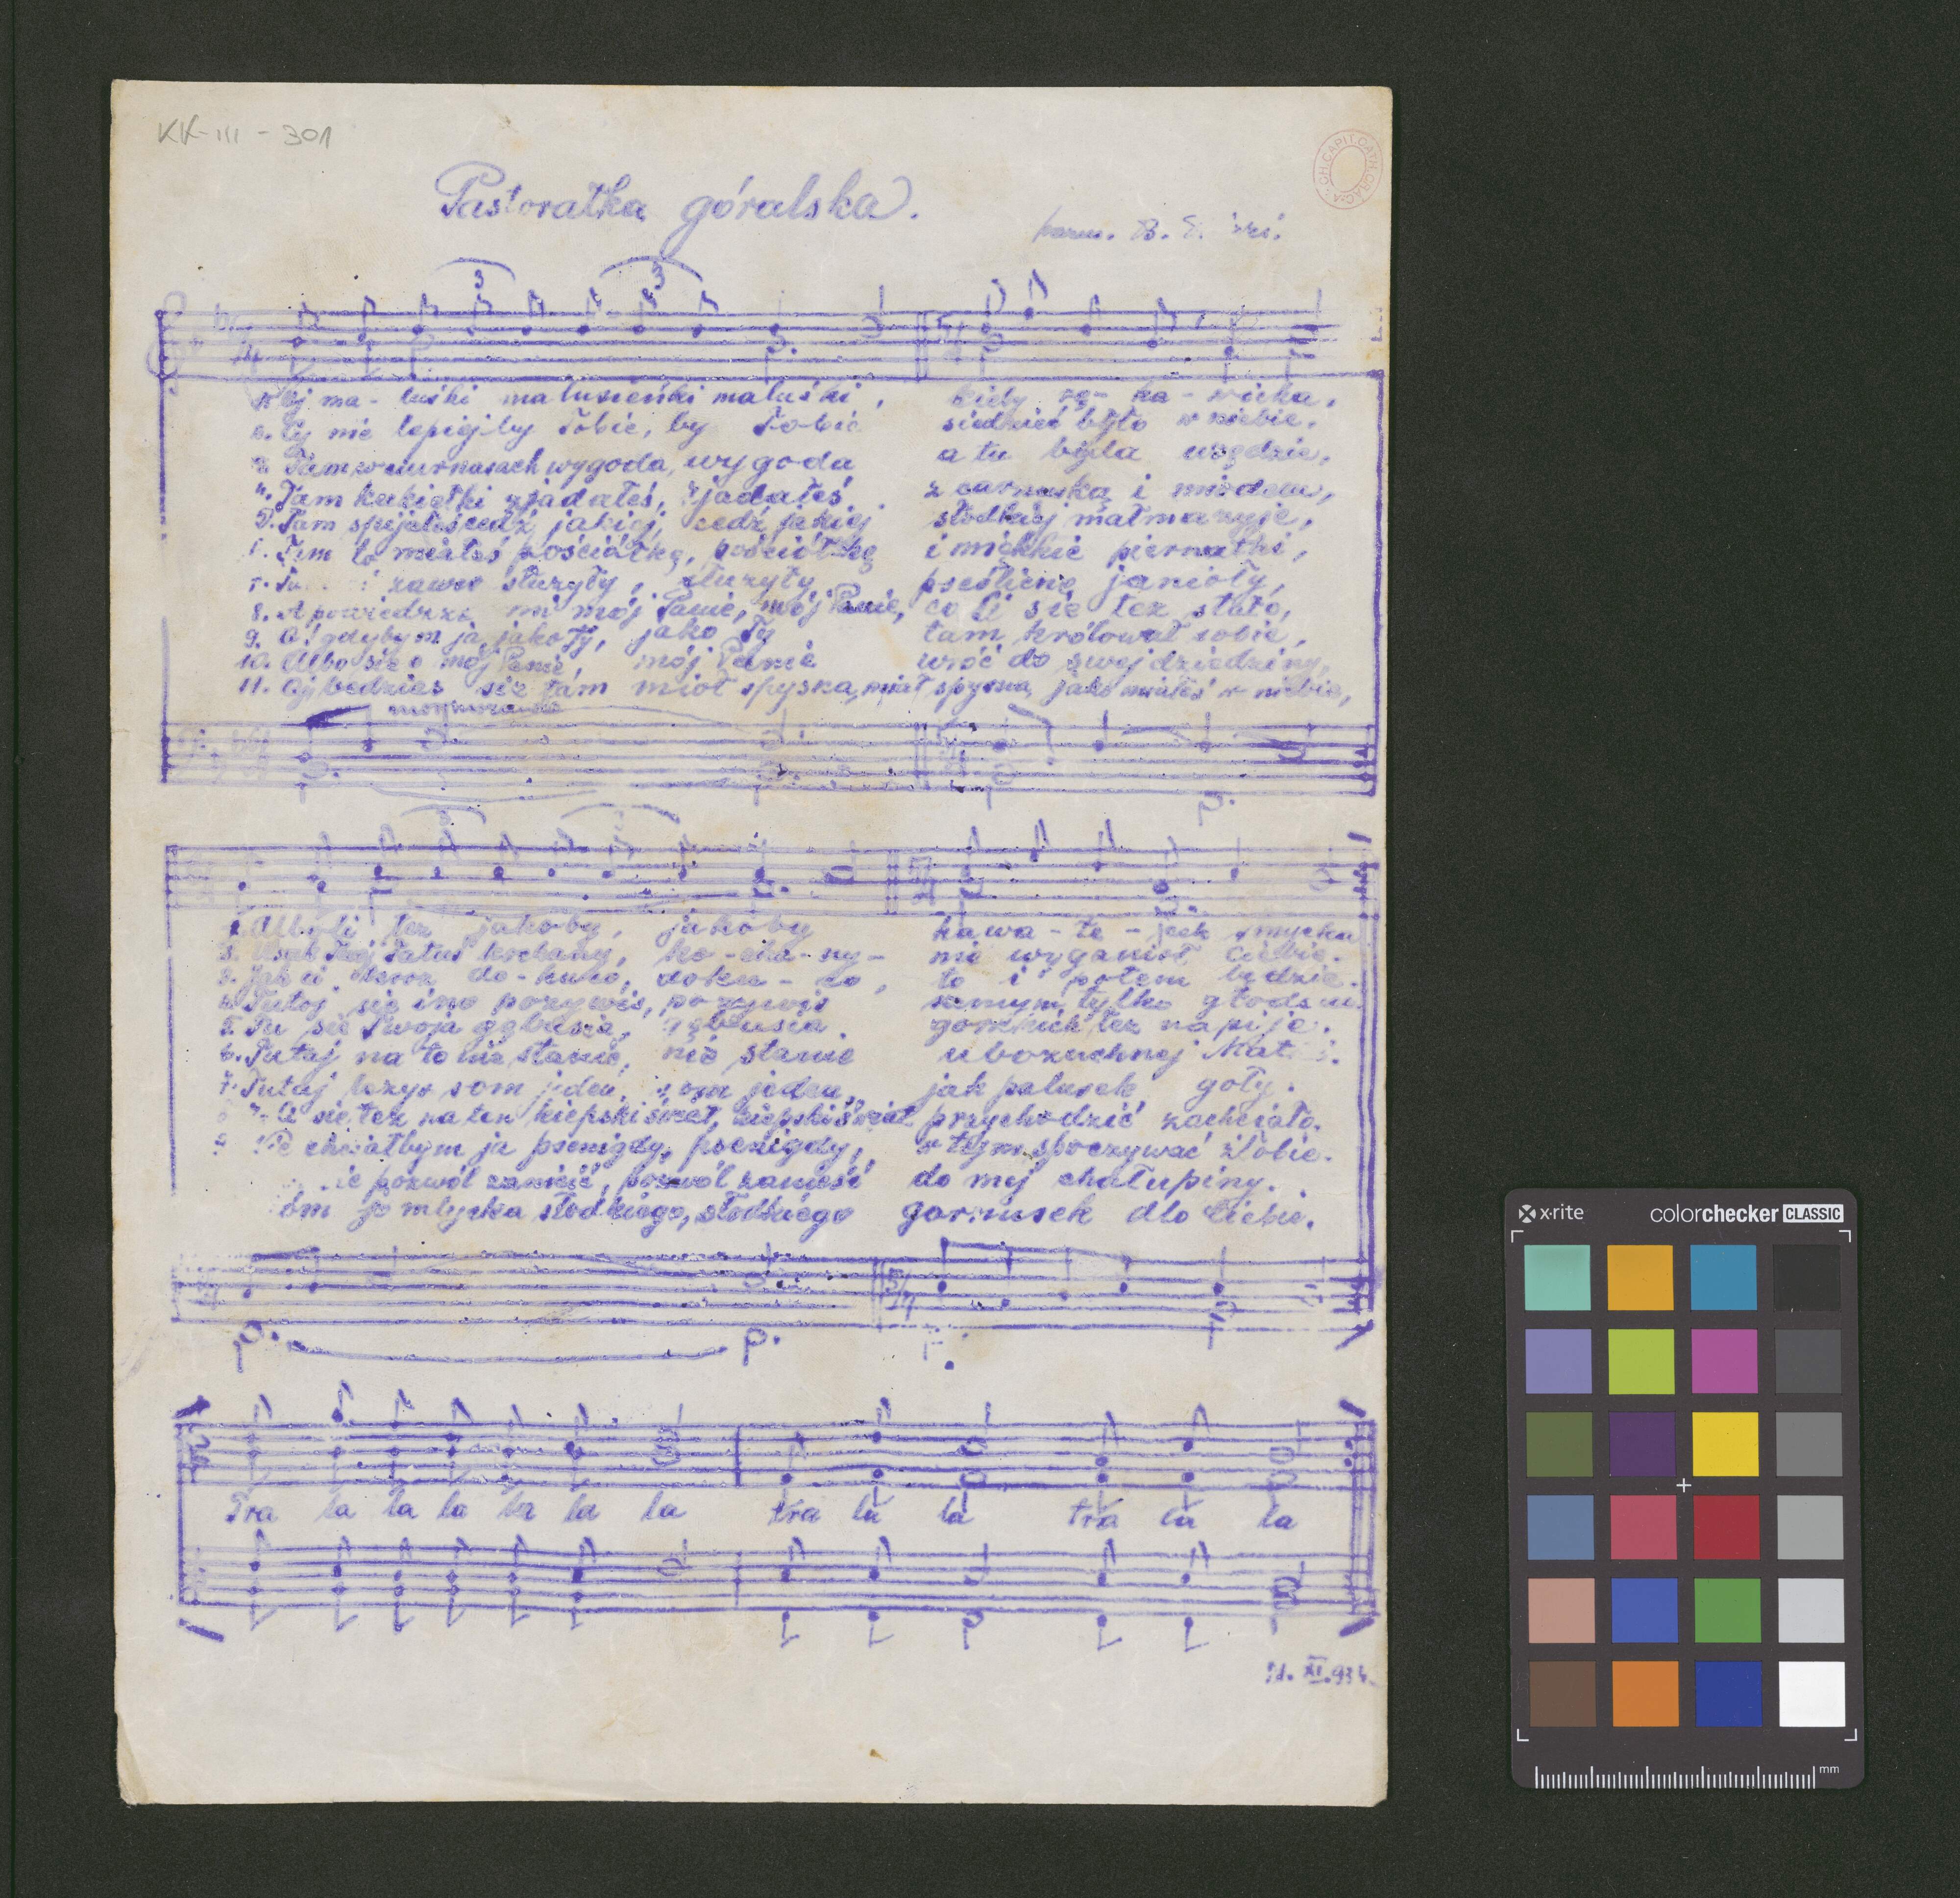 KK-III-301
Pastorałka góralska.
harm. B.
3 3
Oj ma-luśki malusieńki maluśki, kieby rę-ka-wicka,
2. Cy nie lepiej by Tobie, by To-bie siedzieć było w niebie,
3. Tam wciurnasach wygoda, wygoda a tu była wszędzie,
4. Tam kukiełki zjadałeś, zjadałeś z carnuską i miodem,
5. Tam spijałeś cedź jakiej, cedź jakiej słodkiej małmazyje,
6. Tam to miałeś pościółkę, pościółkę i miękkie piernatki,
7. zawse słuzyły, słuzyły prześlicne janioły,
8. A powiedzze mi mój Panie, mój Panie, co Ci się tez stało,
9. Oj gdybym ja jako Ty, jako Ty tam królował sobie,
10. Albo się o mój Panie, mój Panie wróć do swej dziedziny,
11. Oj bedzies sie tam miot spyska, miał spyska, jako miałeś w niebie,
mormorando
1. Alboli tez jakoby, jakoby kawa-te-jek smycka
2. Wsak Twój Tatuś kochany, ko-cha-ny- nie wyganioł Ciebie.
3. Jak ci teroz do-kuco, doku-co, to i potem będzie.
4. Tutoj się ino pozywis, pozywis samym tylko głodem.
5. Tu się Twoja gębusia, gębusia gorzkich łez napije.
6. Tutaj na to nie stanie, nie stanie ubozuchnej Mat
7. Tutaj lezys som jeden, som jeden, jak palusek goły.
8 A sie tez na ten kiepski świat, kiepski świat przychodzić zachciało.
9 Nie chciałbym ja psenigdy, psenigdy, w tejm spoczywać żłobie.
pozwól zanieść, pozwól zanieść do mej chałupiny.
om jo mlycka słodkiego, słodkiego garnusek dlo Ciebie.
Tra la la la la la la tra la la tra la la
XI.934.
x-rite colorchecker CLASSIC
mm